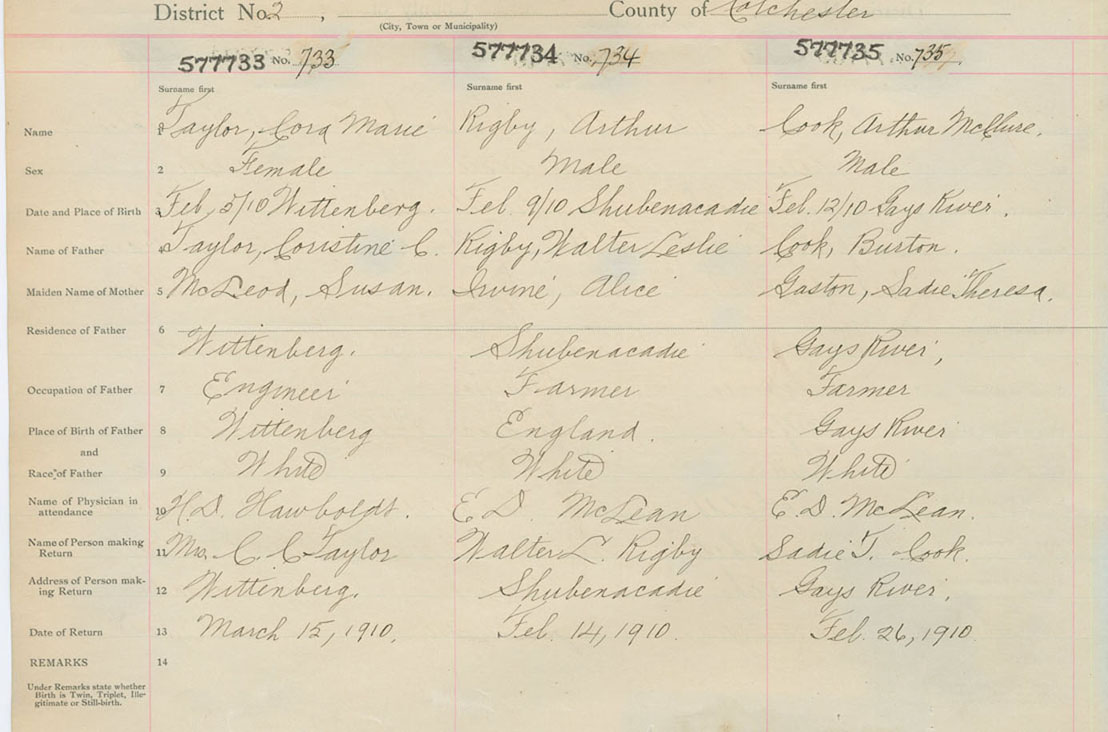 District No. 2 , County of Colchester
(City, Town or Municipality)
577733 No. 733 577734 No. 734 577735 No. 735
Surname first Surname first Surname first
Name 1 Taylor, Cora Marie Rigby, Arthur Cook, Arthur McClure.
Sex 2 Female Male Male
Date and Place of Birth 3 Feb. 5/10 Wittenberg. Feb. 9/10 Shubenacadie Feb. 12/10 Gays River.
Name of Father 4 Taylor, Coristine C. Rigby, Walter Leslie Cook, Burton.
Maiden Name of Mother 5 McLeod, Susan. Irvine, Alice Gaston, Sadie Theresa.
Residence of Father 6 Wittenberg. Shubenacadie Gays River,
Occupation of Father 7 Engineer Farmer Farmer
Place of Birth of Father 8 Wittenberg England. Gays River
and
Race of Father 9 White White White
Name of Physician in
attendance 10 H.D. Hawboldt. E D. McLean E.D. McLean.
Name of Person making
Return 11 Mrs. C C Taylor Walter L. Rigby Sadie T. Cook.
Address of Person mak-
ing Return 12 Wittenberg. Shubenacadie Gays River.
Date of Return 13 March 15, 1910. Feb. 14, 1910. Feb. 26, 1910
REMARKS 14
Under Remarks state whether
Birth is Twin, Triplet, Ille-
gitimate or Still-birth.